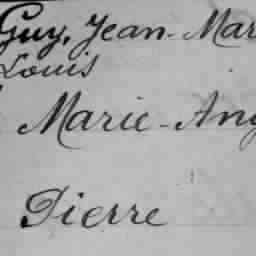 Guy, Jean-Mar
Louis
Marie-Ang
Pierre